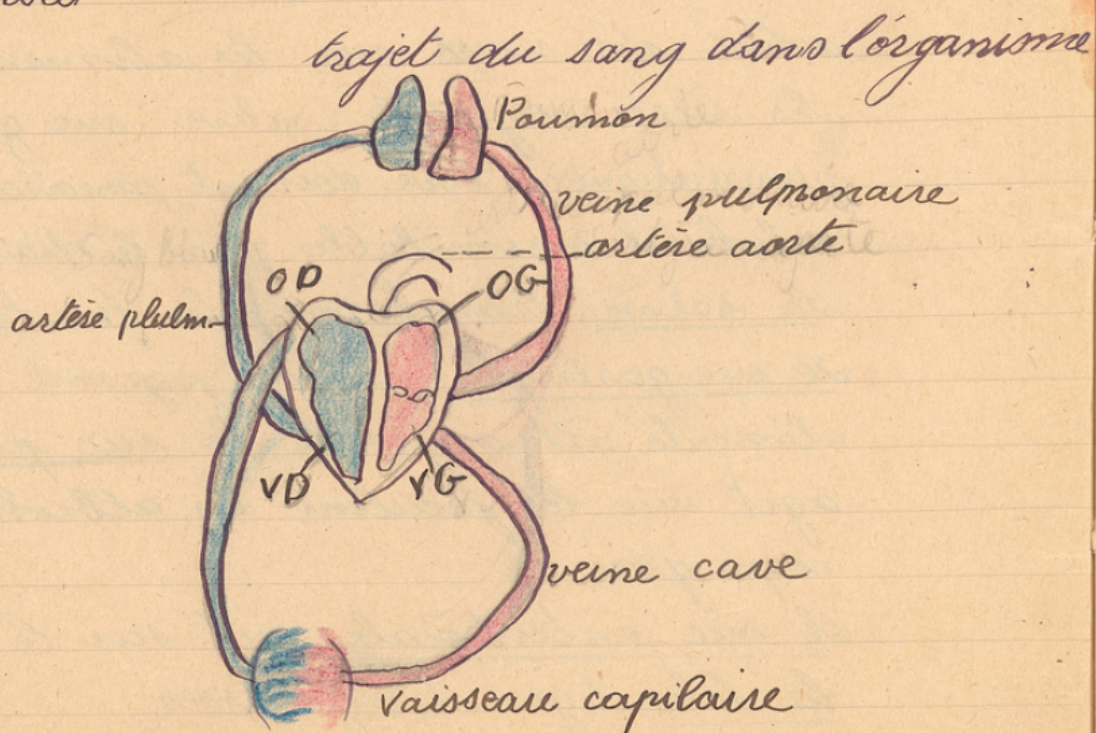 trajet du sang dans l'organisme
Poumon
veine pulmonaire
artère aorte
OD
OG
artère plulm
VD
VG
veine cave
vaisseau capilaire